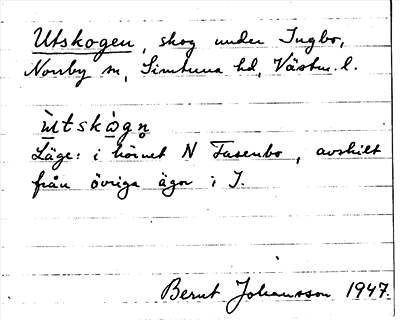 Utskogen, skog under Ingbo,
Norrby sn, Simtuna hd, Västm. l.
ùtskògn̥
Läge: i hörnet N Fusenbo, avskilt
från övriga ägor i I.
Bernt Johansson 1947.